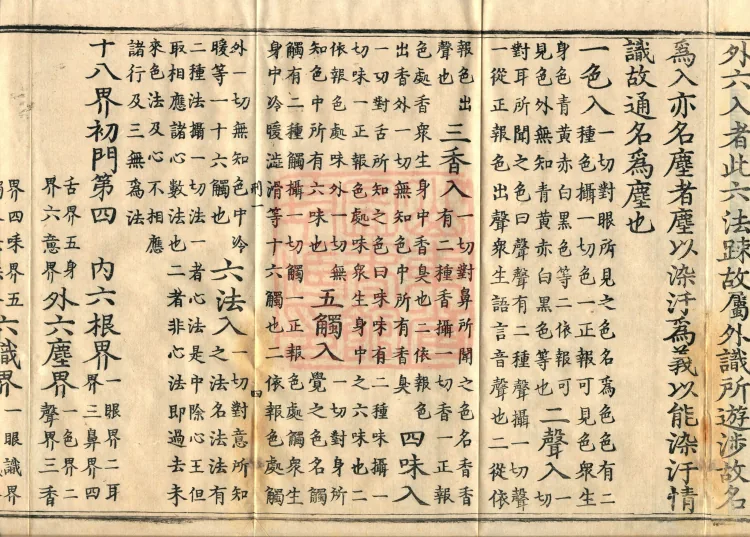 外六入者此六法踈故屬外識所遊涉故名
為入亦名塵者塵以染汙為義以能染汙情
識故通名為塵也
一色入
一切對眼所見之色名爲色色有二
種色攝一切色一正報可見色衆生
身色青黃赤白黑色等二依報可
見色外無知青黃赤白黑色等也
二聲入
一切
對耳所聞之色曰聲聲有二種聲攝一切聲
一從正報色出聲衆生語言音聲也二從依
報色出
聲也
三香入
一切對鼻所聞之色名香香
有二種香攝一切香一正報
色處香衆生身中香臭也二依報色
出香外一切無知色中所有香臭
四味入
一切對舌所知之色曰味味有二種味攝一
切味一正報色處味衆生身中之六味也二
依報色處味外一切無
知色中所有六味也
五觸入
一切對身所
覺之色名觸
觸有二種觸攝一切觸一正報色處觸衆生
身中冷暖澁滑等十六觸也二依報色處觸
刑一
四
外一切無知色中冷
暖等一十六觸也
六法入
一切對意所知
之法名法法有
二種法攝一切法一者心法是中除心王但
取相應諸心數法也二者非心法即過去未
來色法及心不相應
諸行及三無爲法
十八界初門第四
內六根界
一眼界二耳
界三鼻界四
舌界五身
界六意界
外六塵界
一色界二
聲界三香
界四味界五
六識界
一眼識界